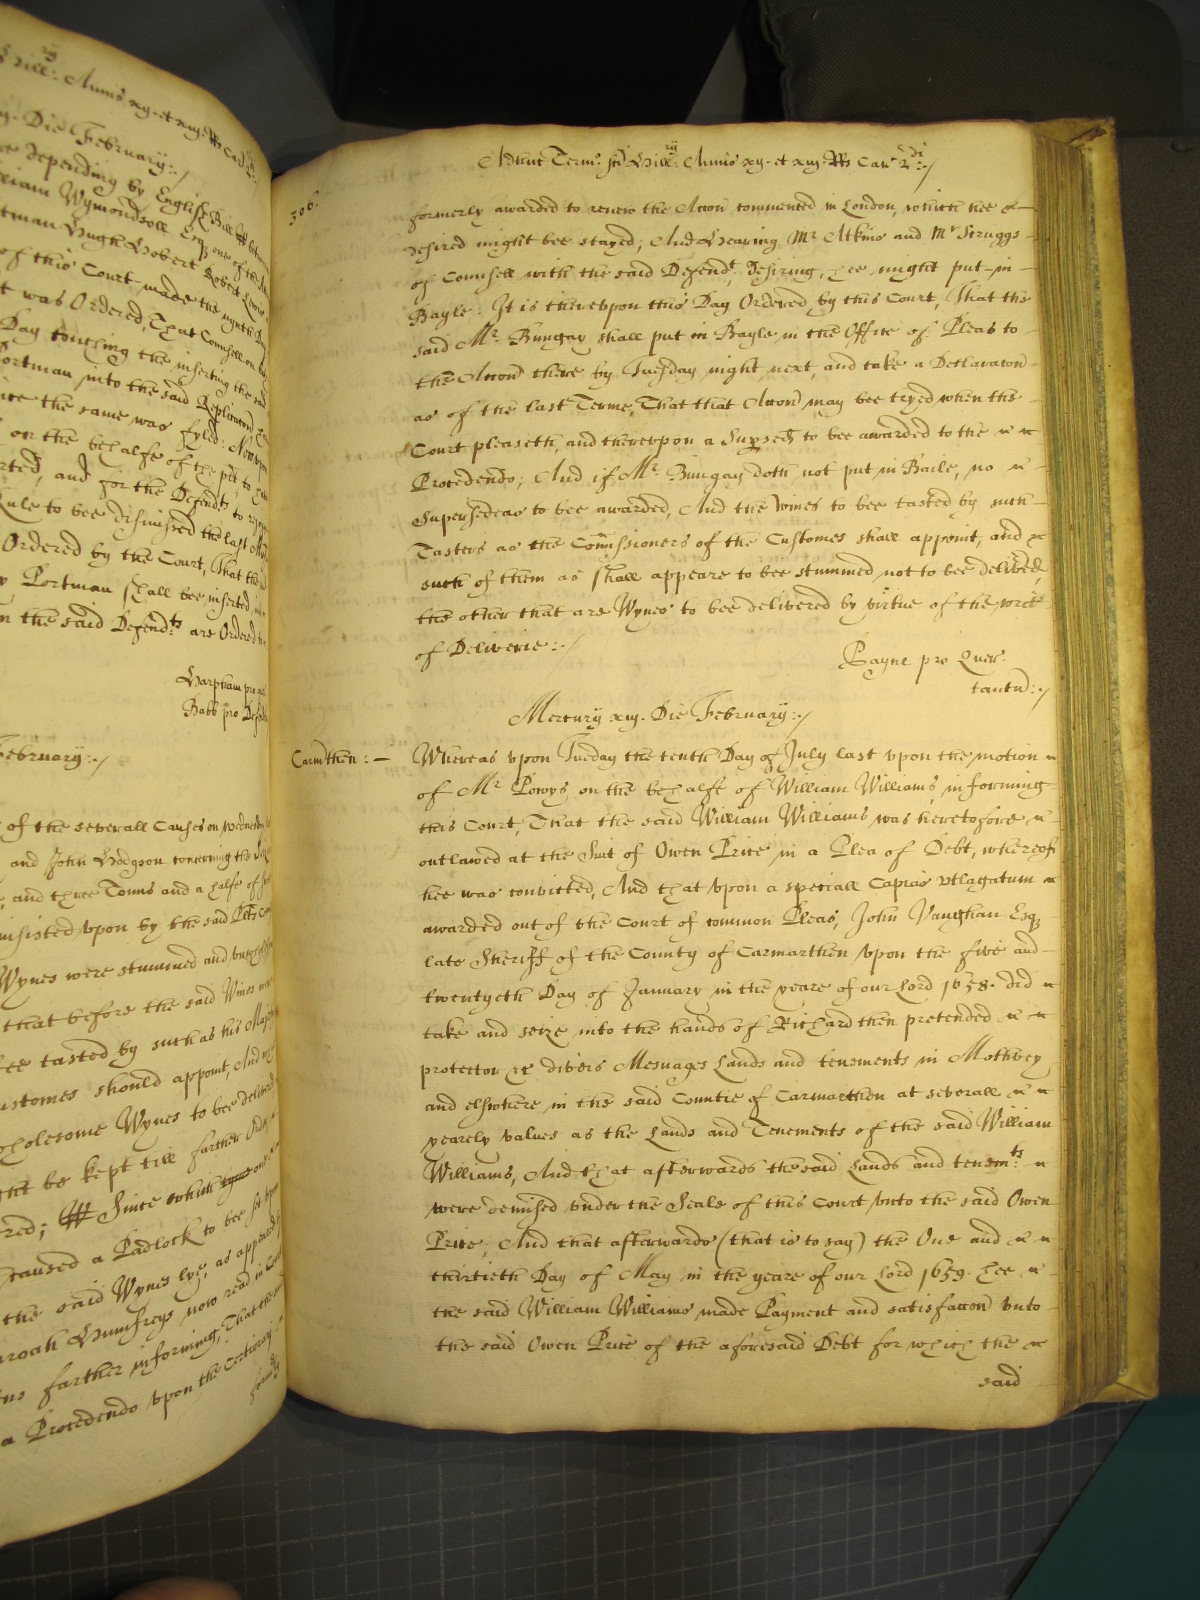 Hill: Annis xij. et xiij. RRs Car: 2di:
Die February:
depending by English Bill
William Wymondsoll Esqr one of the
Portman Hugh Hobert Robert
of this Court made the nynth Day
it was Ordered, That Counsell on
Day touching the inserting the said
Portman into the said Replicacon
since the same was fyled: Now upon
on the behalfe of the plt to
and for the Defendts to
Rule to bee dismissed the last
Ordered by the Court, That the
Portman shall bee inserted
the said Defendts are Ordered
Harpham pro
Babb pro Defend
February:
of the severall Causes on Wednesday
and John Hodgson concerning the
and three Tonns and a halfe of
insisted upon by the said Plts
Wynes were stummed and
that before the said Wines
bee tasted by such as his Majties
Customes should appoint, And
wholesome Wynes to bee delivered
might be kept till farther Order
Since which
caused a Padlock to bee set upon
the said Wynes lye, as appeared
Humfreys now read in Court
farther informing, That the
a Procedendo upon the Certiorari
formerly
306.
Adhuc Term: Sci Hillrij: Annis xij. et xiij. RRs Car: 2di:/
formerly awarded to renew the Accon commenced in London, which hee
desired might bee stayed; And Hearing Mr Atkins and Mr Scruggs
of Counsell with the said Defendt desiring, hee might put in
Bayle. It is thereupon this Day Ordered by this Court, That the
said Mr. Bungay shall put in Bayle in the Office of Pleas to
the Accon there by Tuesday night next, and take a Declaracon
as of the last Terme, That that Accon may bee tryed when the
Court pleaseth, and thereupon a Supseds to bee awarded to the
Procedendo; And if Mr. Bungay doth not put in Baile, no
Supersedeas to bee awarded, And the Wines to bee tasted by such
Tasters as the Comissioners of the Customes shall appoint, and
such of them as shall appeare to bee stummed not to bee delived,
the other that are Wynes to bee delivered by virtue of the writt
of Deliverie:./
Payne pro Quer:
tantu:./
Mercury xiij. Die February:./
Carmthen:
Whereas upon Tuesday the tenth Day of July last upon the motion
of Mr Powys on the behalfe of William Williams, informing
this Court, That the said William Williams was heretofore
outlawed at the Suit of Owen Price in a Plea of Debt, whereof
hee was convicted, And that upon a speciall Capias utlagatum
awarded out of the Court of common Pleas, John Vaughan Esqr
late Sheriff of the County of Carmarthen upon the five and
twentyeth Day of January in the yeare of our Lord 1658. did
take and seize into the hands of Richard then pretended
protector &c divers Mesuages Lands and tenements in Mothvey
and elswhere in the said Countie of Carmarthen at severall
yearely values as the Lands and Tenements of the said William
Williams, And that afterwards the said Lands and tenemts:
were demised under the Seale of this Court unto the said Owen
Price, And that afterwards (that is to say) the One and
thirtieth Day of May in the yeare of our Lord 1659. hee
the said William Williams made Payment and satisfaccon unto
the said Owen Price of the aforesaid Debt for which the
said